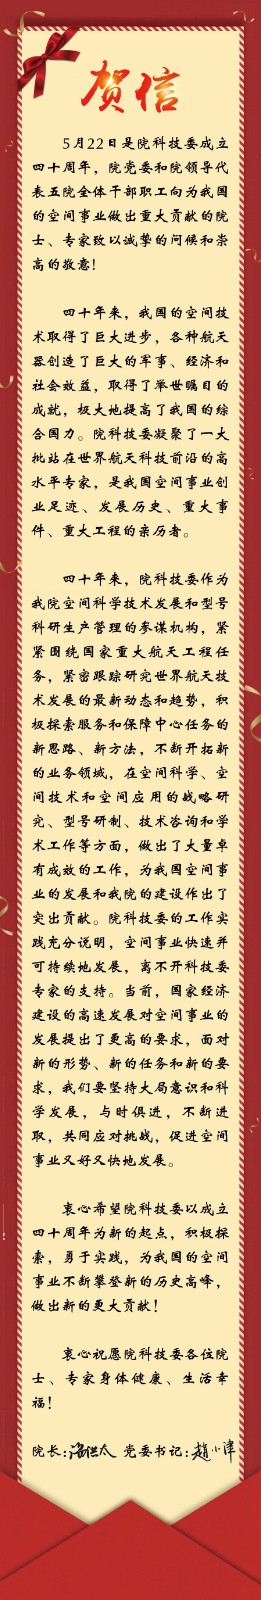 贺信
5月22日是院科技委成立
四十周年，院党委和院领导代
表五院全体干部职工向为我国
的空间事业做出重大贡献的院
士、专家致以诚挚的问候和崇
高的敬意!
四十年来，我国的空间技
术取得了巨大进步，各种航天
器创造了巨大的军事、经济和
社会效益，取得了举世瞩目的
成就，极大地提高了我国的综
合国力。院科技委凝聚了一大
批站在世界航天科技前沿的高
水平专家，是我国空间事业创
业足迹、发展历史、重大事
件、重大工程的亲历者。
四十年来，院科技委作为
我院空间科学技术发展和型号
科研生产管理的参谋机构，紧
紧围绕国家重大航天工程任
务，紧密跟踪研究世界航天技
术发展的最新动态和趋势，积
极探索服务和保障中心任务的
新思路、新方法，不断开拓新
的业务领域，在空间科学、空
间技术和空间应用的战略研
究、型号研制、技术咨询和学
术工作等方面，做出了大量卓
有成效的工作，为我国空间事
业的发展和我院的建设作出了
突出贡献。院科技委的工作实
践充分说明，空间事业快速并
可持续地发展，离不开科技委
专家的支持。当前，国家经济
建设的高速发展对空间事业的
发展提出了更高的要求，面对
新的形势、新的任务和新的要
求，我们要坚持大局意识和科
学发展，与时俱进，不断进
取，共同应对挑战，促进空间
事业又好又快地发展。
衷心希望院科技委以成立
四十周年为新的起点，积极探
索，勇于实践，为我国的空间
事业不断攀登新的历史高峰，
做出新的更大贡献!
衷心祝愿院科技委各位院
士、专家身体健康、生活幸
福!
院长: 党委书记:赵小津